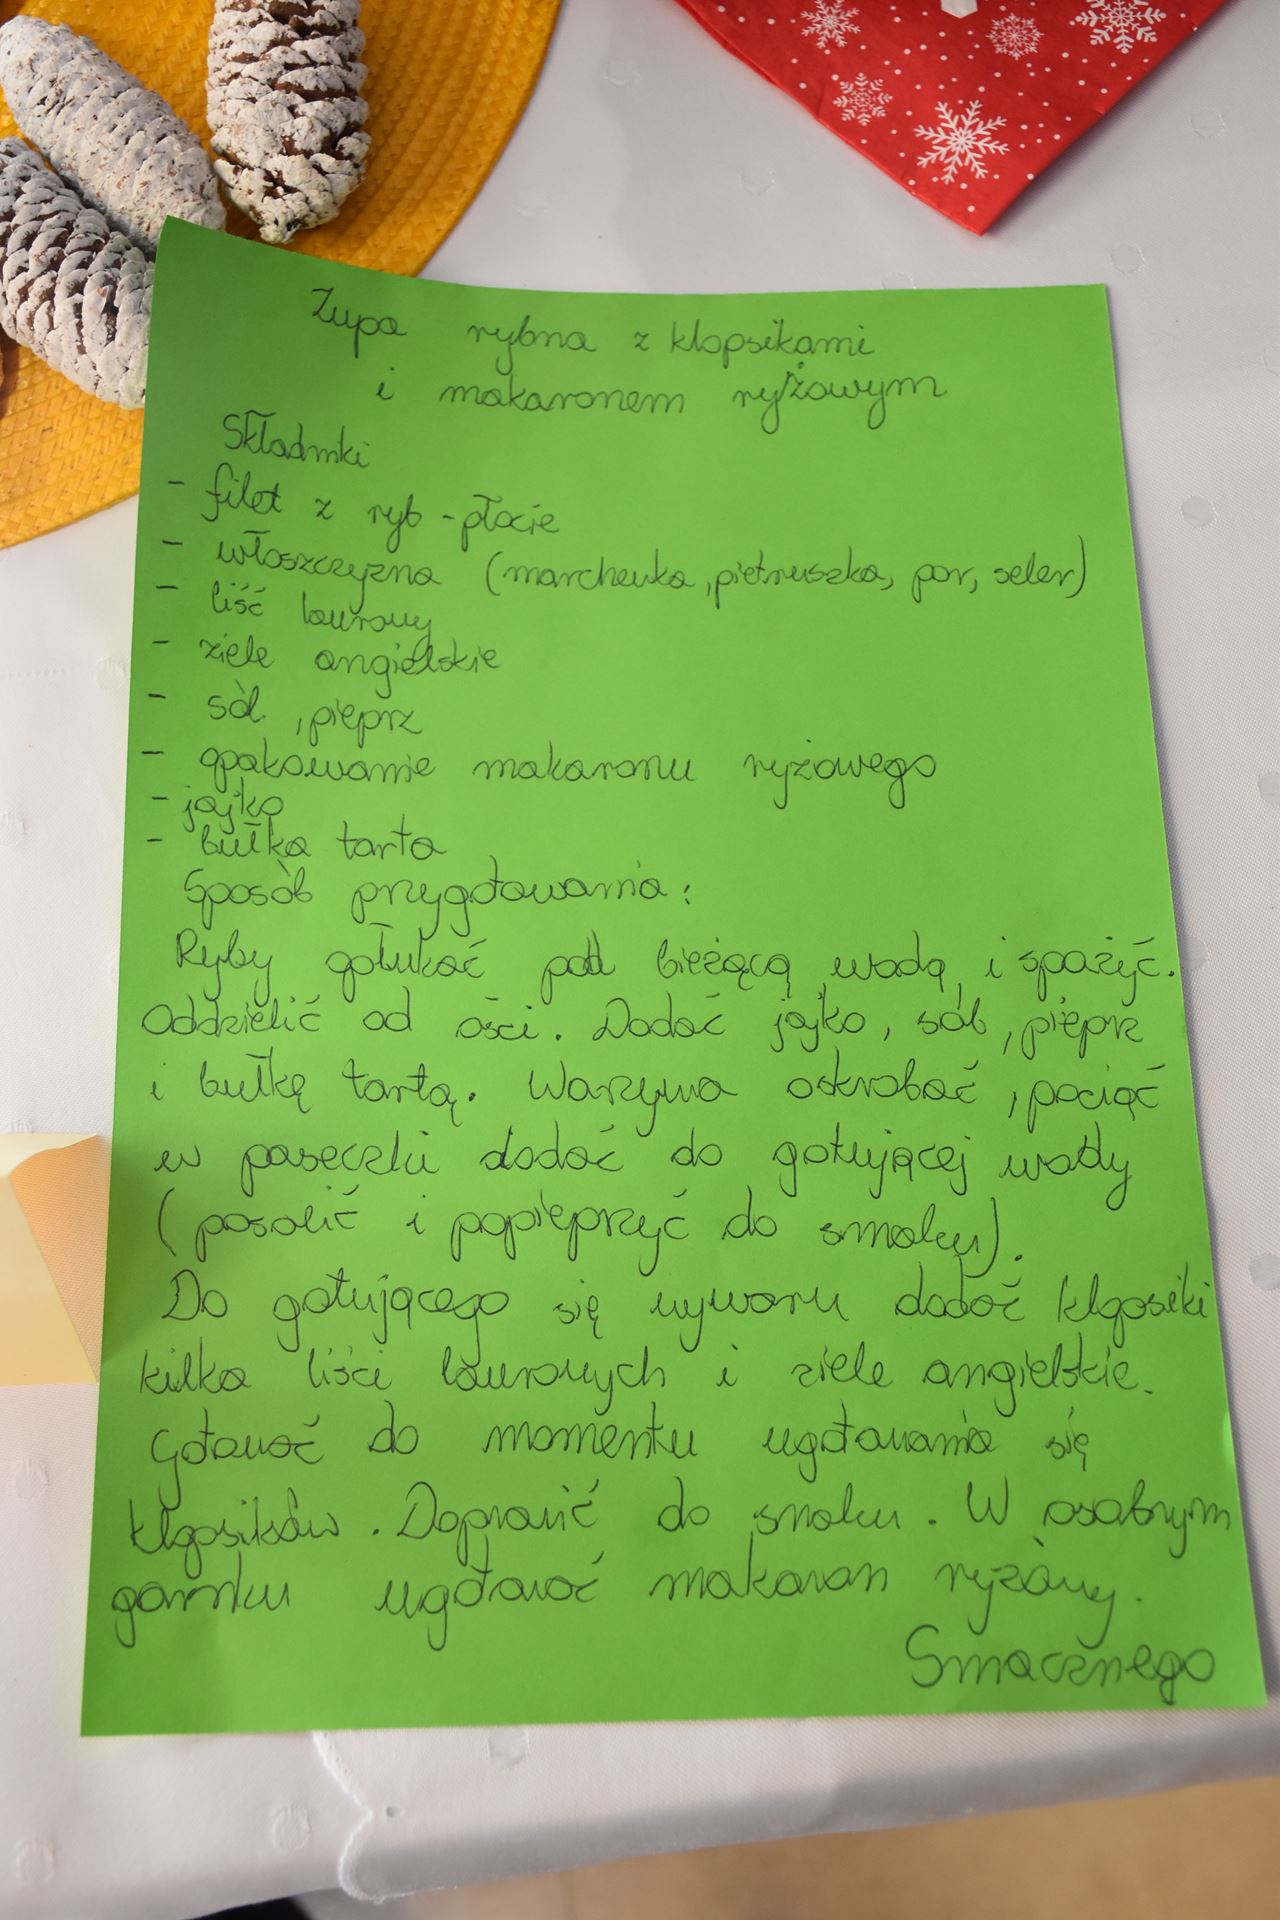 Zupa rybna z klopsikami
i makaronem ryżowym
Składniki
- filet z ryb - płocie
- włoszczyzna (marchewka, pietruszka, por, seler)
- liść laurowy
- ziele angielskie
- sól, pieprz
- opakowanie makaronu ryżowego
- jajko
- bułka tarta
Sposób przygotowania:
Ryby opłukać pod bieżącą wodą i sparzyć.
Oddzielić od ości. Dodać jajko, sól, pieprz
i bułkę tartą. Warzywa oskrobać, pociąć
w paseczki dodać do gotującej wody
(posolić i popieprzyć do smaku).
Do gotującego się wywaru dodać klopsiki
kilka liści laurowych i ziele angielskie.
Gotować do momentu ugotowania się
klopsików. Doprawić do smaku. W osobnym
garnku ugotować makaron ryżowy.
Smacznego